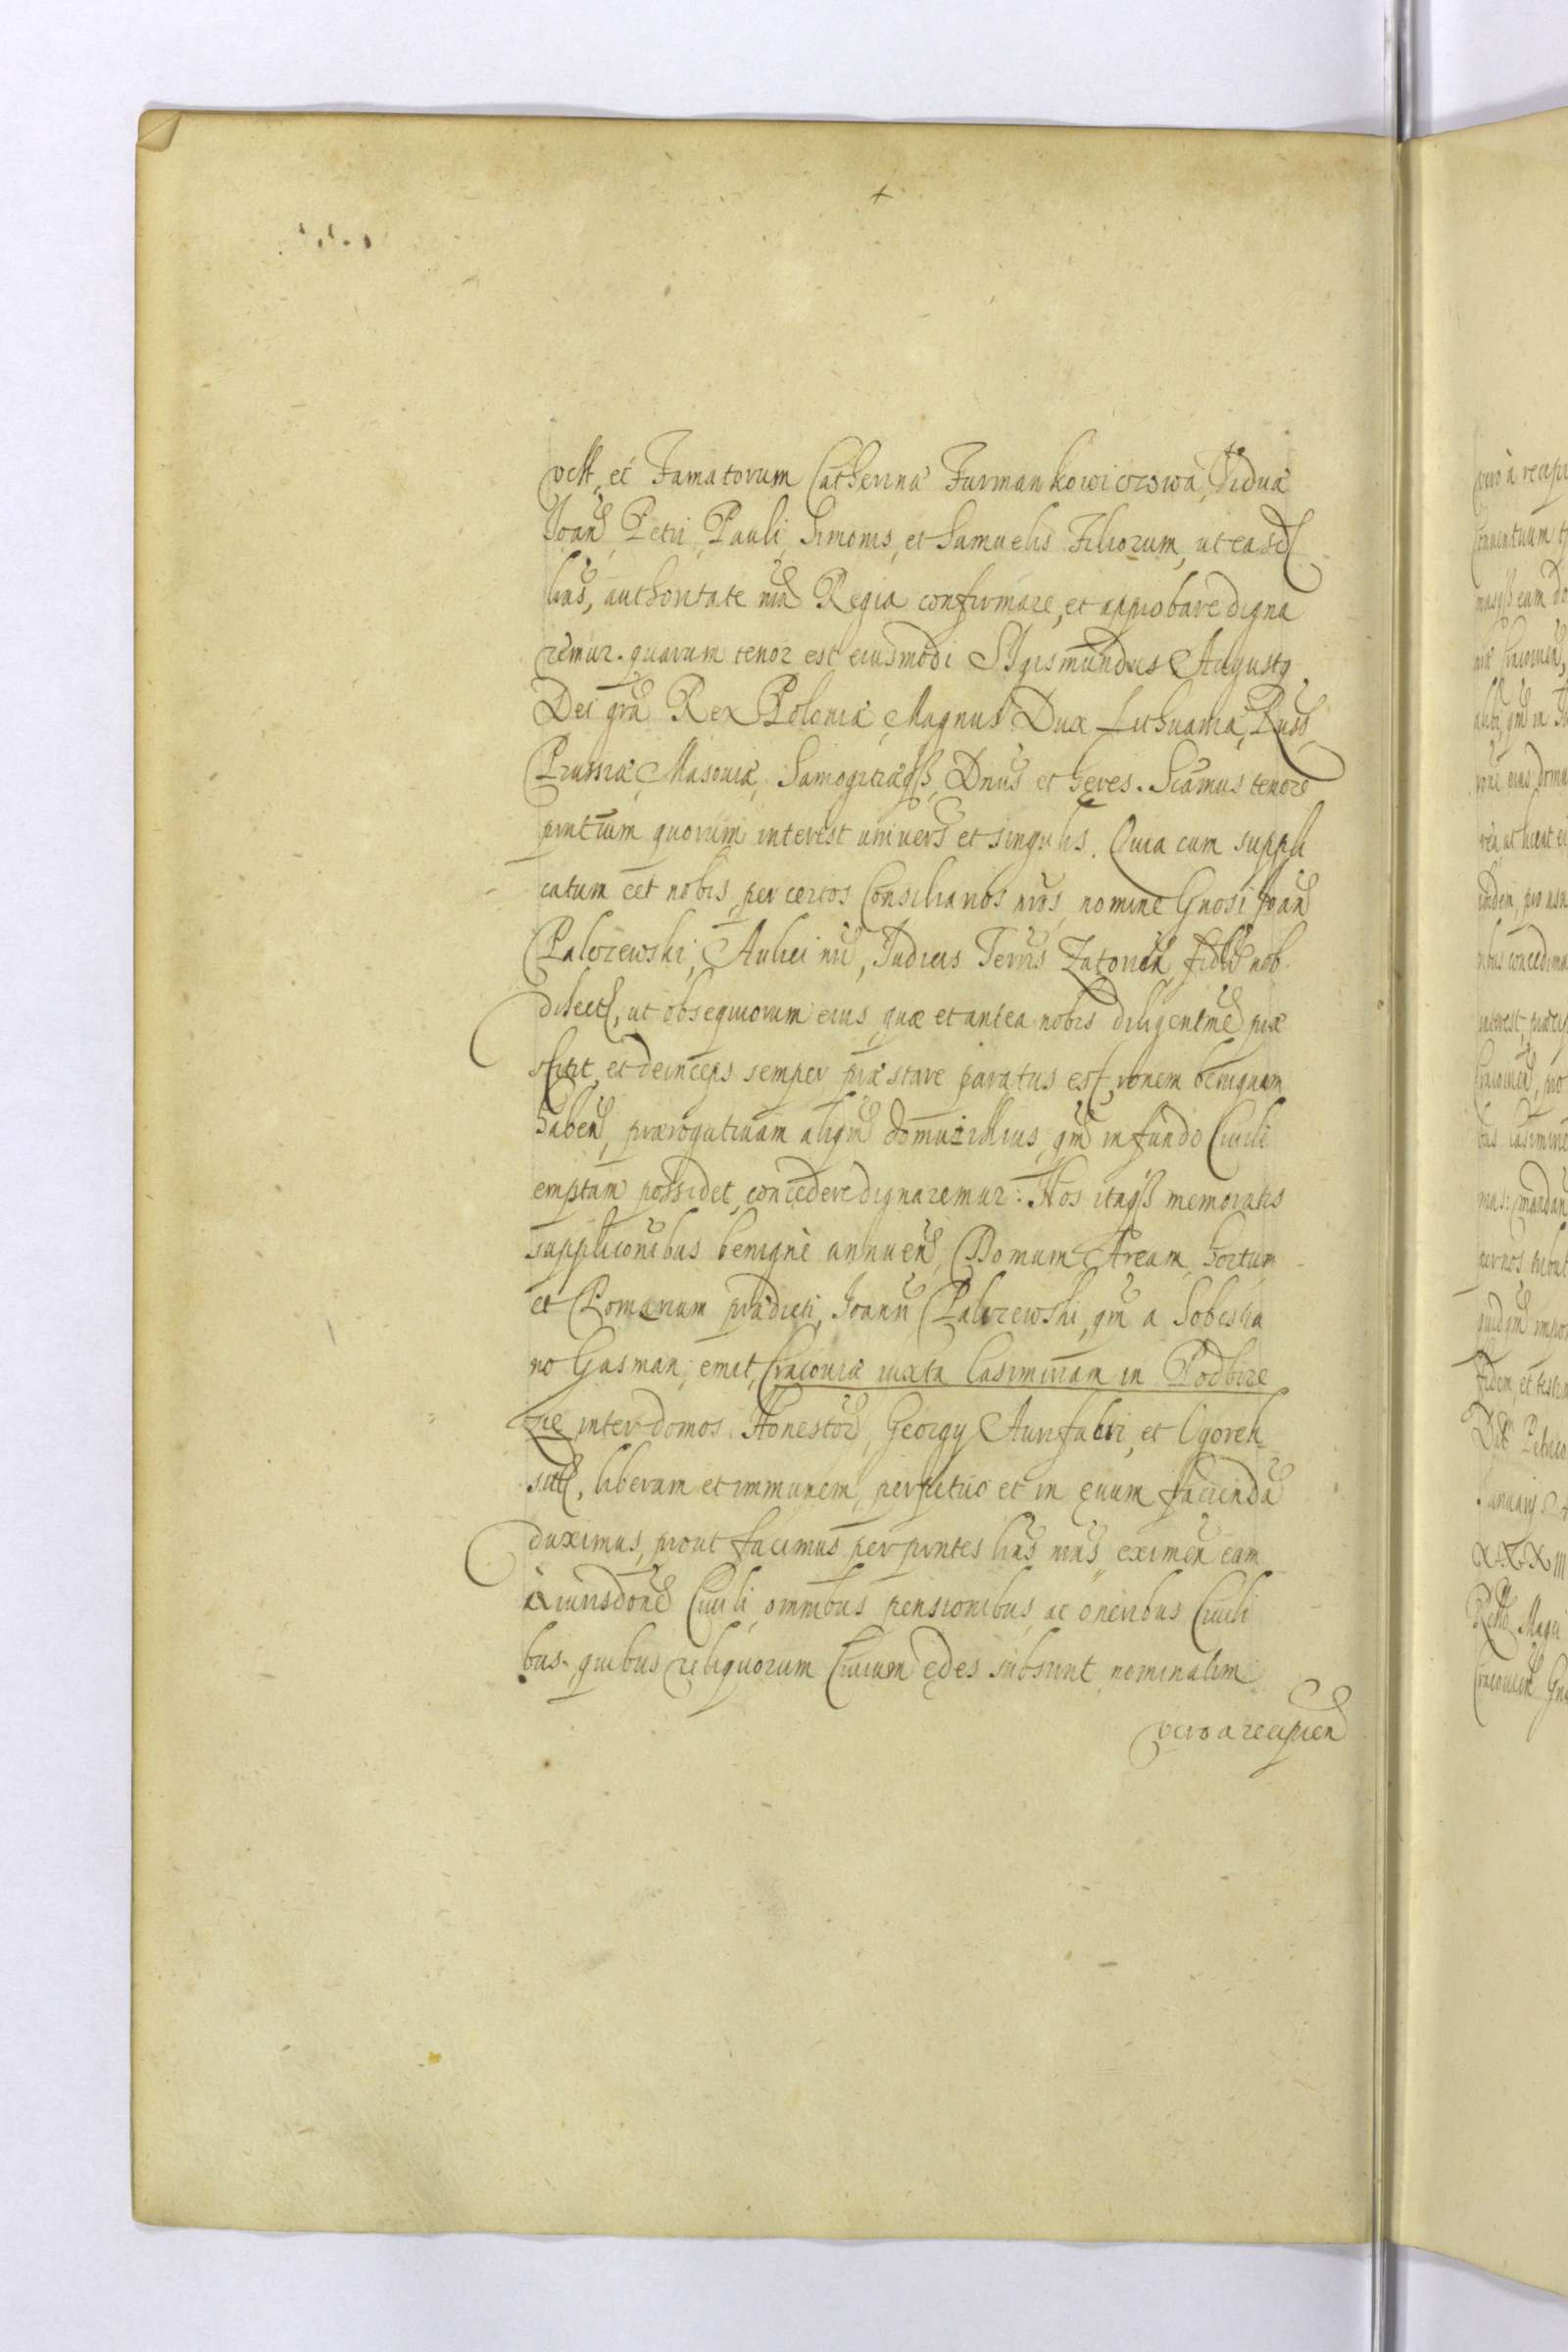 et Famatorum Catherinæ Furmankowiczowa, Viduæ
Joan̄ Petri, Pauli, Simonis, et Samuelis Filiorum, ut easd
lras, authoritate nra Regia confirmare, et approbare digna
remur. quarum tenor est eiusmodi Sigismundus Augustq
Dei gra Rex Poloniæ, Magnus Dux Lithuaniæ, Russ
Prussiæ, Masoviæ, Samogitiæqȝ, Dnūs et heres. Scāmus tenore
pntium quorum interest univers et singulis. Quia cum suppli
catum eēt nobis, per certos Consiliarios nros nomine Gnosi Joan
Palczewski, Aulici nri, Judicis Terris Zatorien, fidel nob
dilecti, ut obsequiorum eius, quæ et antea nobis diligentme præ
stitit, et deinceps semper præstare paratus est, ronem benignam
haben, prærogativam aliqm domui illius, qm in fundo Civili
emptam possidet, concedere dignaremur: Nos itaqȝ memoratis
supplicōnibus benignè annuen, Domum Aream, hortum
et Pomarium prædicti, Joann Palczewski, qm a Sobestia
no Gasman, emit, Cracoviæ iuxta Casimiriam in Podbrze
zie, inter domos Honestor, Georgy Aurifabri, et Ogorek
sitt, liberam et immunem, perpetuo et in ęvum facienda
duximus, prout facimus per pntes lras nras, eximen eam
à iurisdone Civili, omnibus pensionibus, ac oneribus Civili
bus. quibus reliquorum Civium ędes subsunt, nominatim
vero a recipien